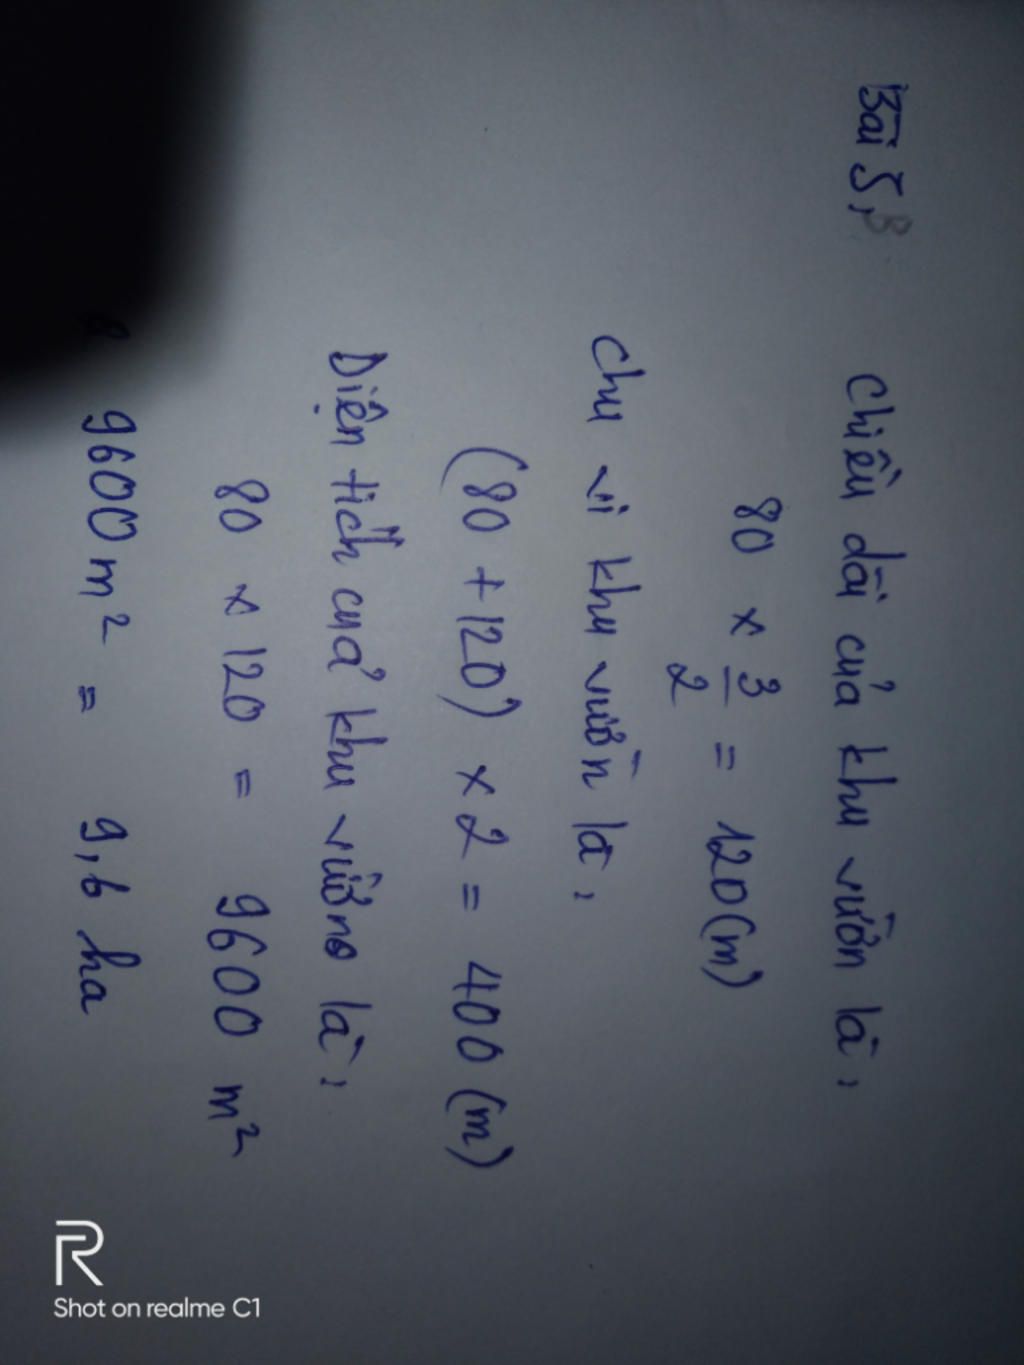 Bài 5,
Chiều dài của khu vườn là:
80 × 3/2 = 120(m)
Chu vi khu vườn là:
(80 + 120) × 2 = 400 (m)
Diện tích của khu vườno là:
80 × 120 = 9600 m²
9600 m² = 9,6 ha
R
Shot on realme C1